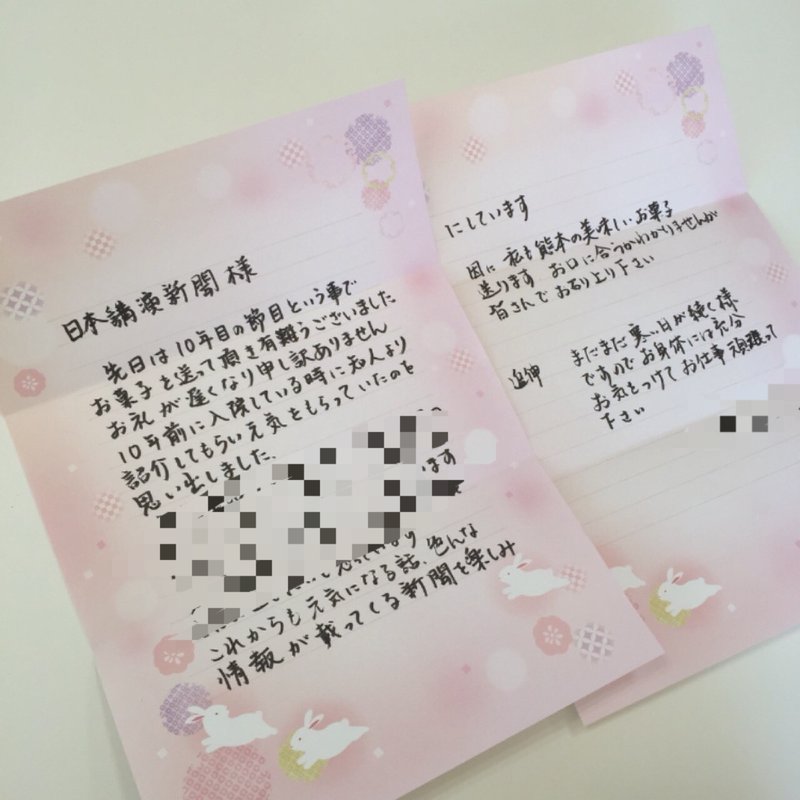 日本講演新聞様
先日は10年目の節目という事で
お菓子を送って頂き有難うございました
お礼が遅くなり申し訳ありません
10年前に入院している時に知人より
紹介してもらい元気をもらっていたのを
思い出しました、
ます
これからも元気になる話、色んな
情報が載ってくる新聞を楽しみ
にしています
因に私も熊本の美味しいお菓子
送ります お口に合うかわかりませんが
皆さんでお召し上り下さい
追伸 まだまだ寒い日が続く様
ですのでお身体には充分
お気をつけてお仕事頑張って
下さい